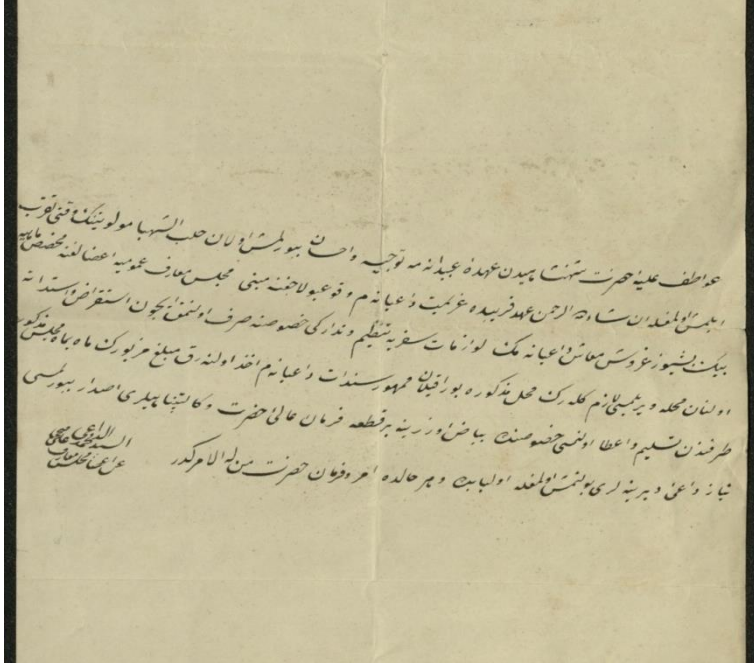 عواطف عليه حضرت شهنشاهيدن عهدۀ عبيدانه مه توجيه واحسان بيورلمش اولان حلب الشهبا مولويتنك وقتى تقرب
ايلمش اولمغله ان شاء الرحمن عهد قريبده عزيمت داعيانه م وقوعبولاجغنه مبنى مجلس معارف عموميه اعضالغنه مخصص ماهيه
بيك بشيوز غروش معاش داعيانه مك لوازمات سفريه تنظيم وتداركى خصوصنه صرف اولنمق ايچون استقراض واستدانه
اولنان محله ويرلمسى لازم كله رك محل مذكوره بوراقيلان ممهور سندات داعيانه م اخذ اولنه رق مبلغ مزبورك ماه بماه مجلس مذكور
طرفندن تسليم واعطا اولنمسى خصوصنك بياض اوزرينه بر قطعه فرمان عالى حضرت وكالتپناهيلرى اصدار بيورلمسى
نياز داعئ ديرينه لرى بولنمش اولمغله اولبابده وهر حالده امر وفرمان حضرت من له الامركدر
الداعى
السيد محمد
عن اعضا مجلس معارف